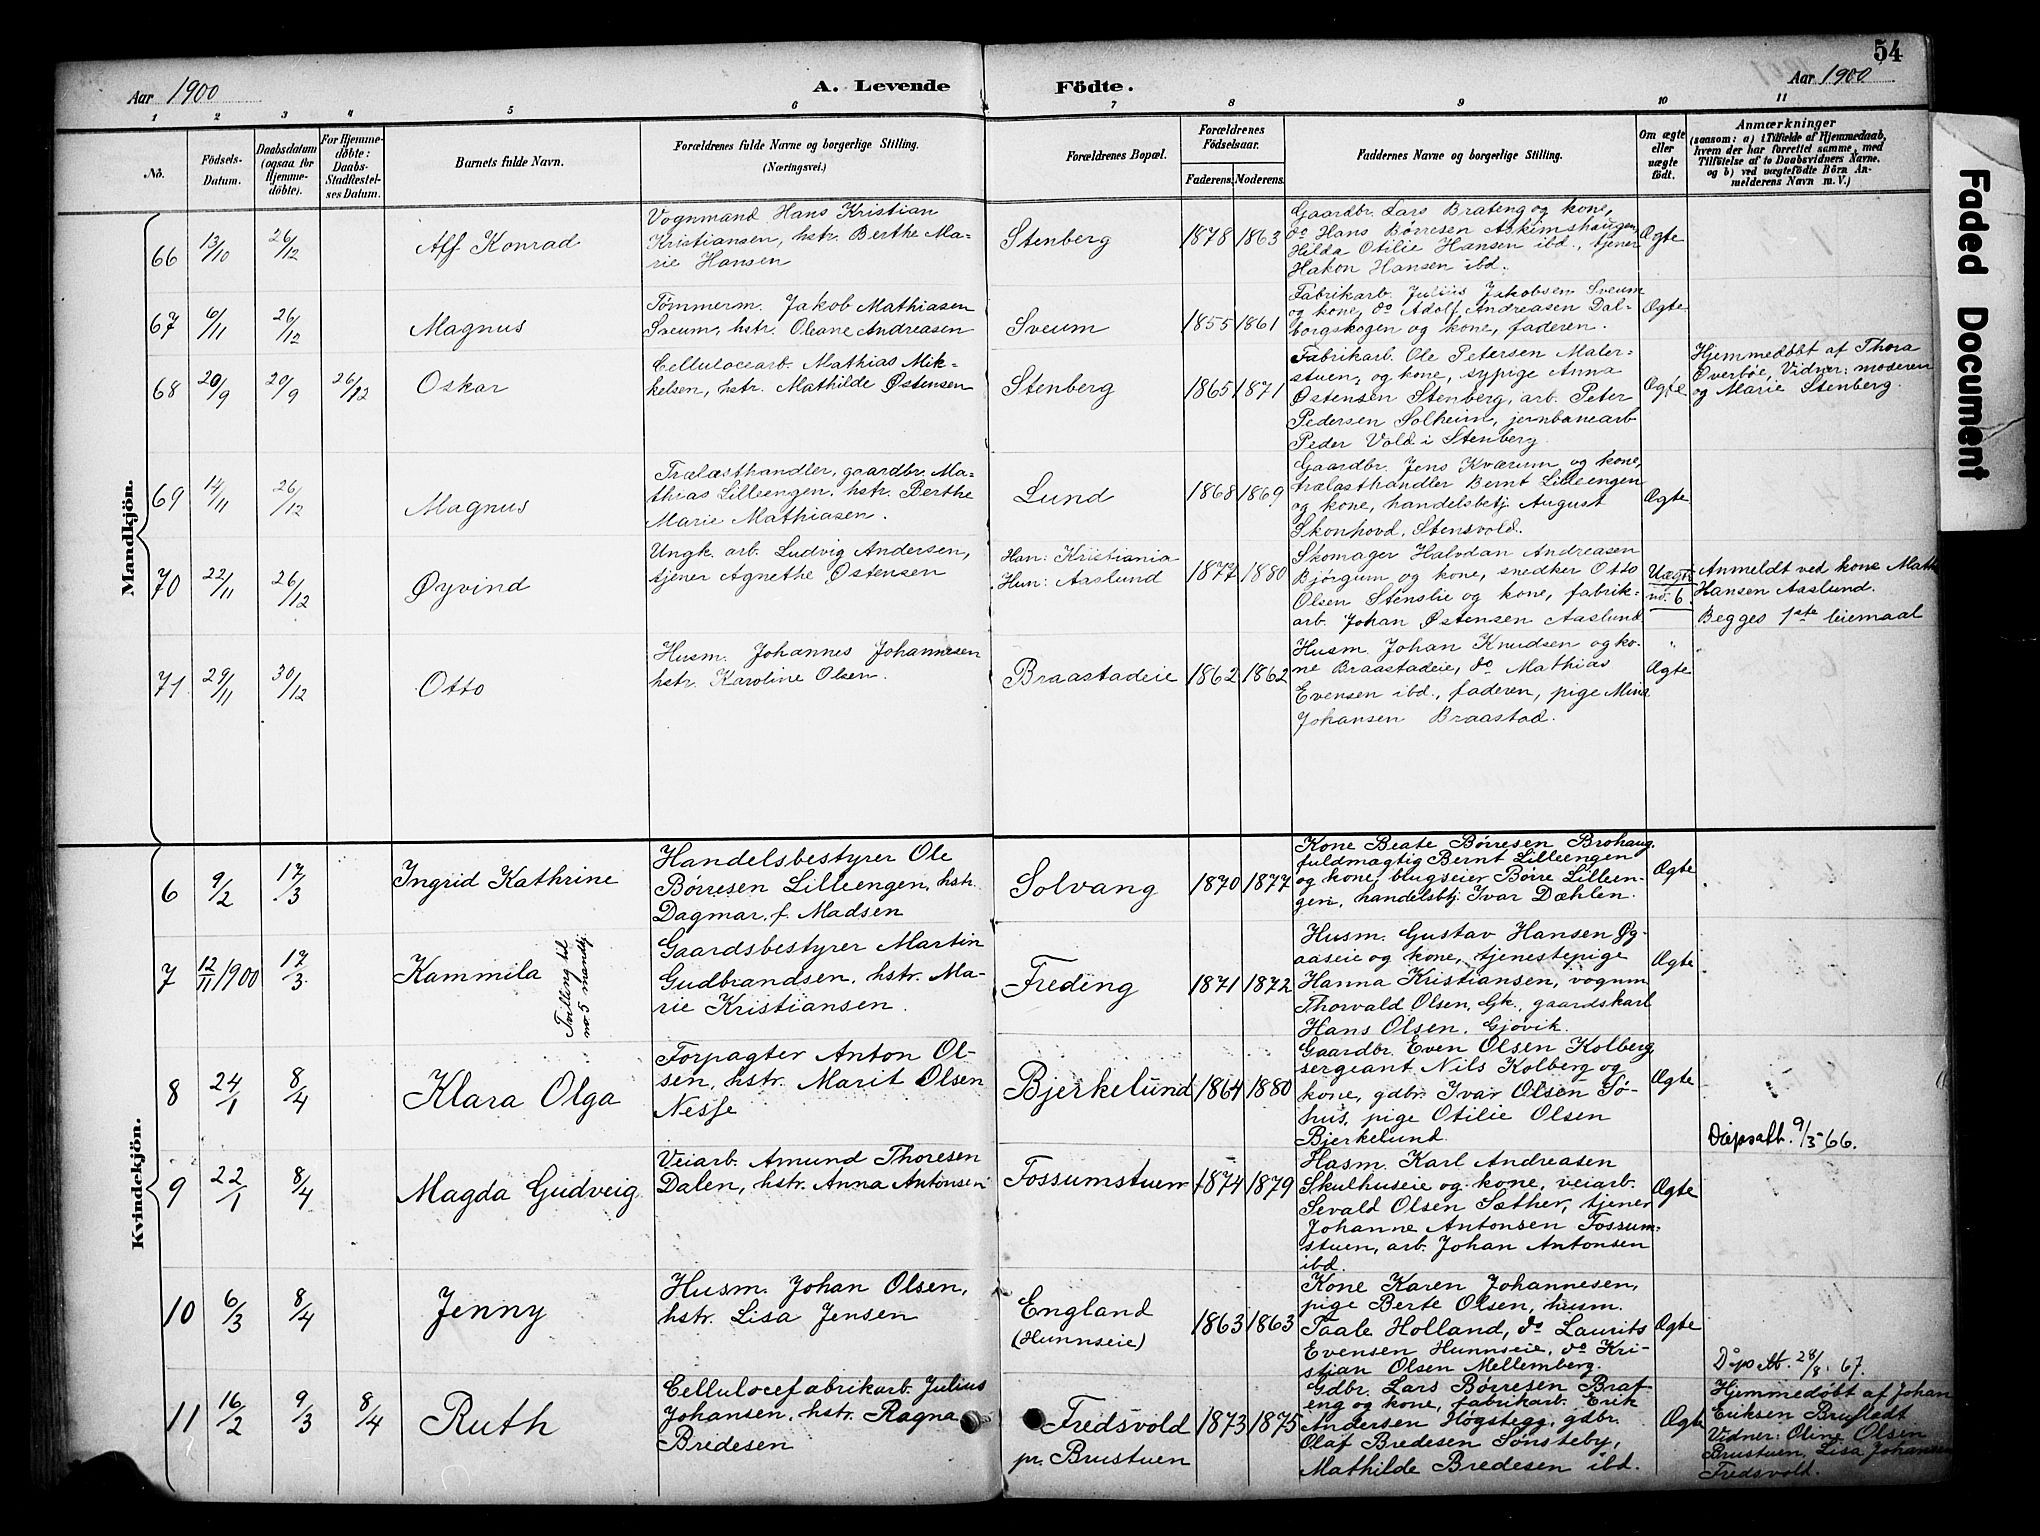 54
Aar 1900
A. Levende Födte.
Aar 1900
1 2 3 4 5 6 7 8 9 10 11
No.
Födsels-
Datum.
Daabsdatum
(ogsaa for
Hjemme-
döbte).
For Hjemme-
döbte:
Daabs-
Stadfæstel-
ses Datum.
Barnets fulde Navn.
Forældrenes fulde Navne og borgerlige Stilling.
(Næringsvei.)
Forældrenes Bopæl.
Forældrenes
Födselsaar.
Faderens. Moderens.
Faddernes Navne og borgerlige Stilling.
Om ægte
eller
uægte
födt.
Anmærkninger
(saasom: a) i Tilfælde af Hjemmedaab,
hvem der har forrettet samme, med
Tilföielse af to Daabsvidners Navne.
og b) ved uægtefödte Börn An-
melderens Navn m. V.)
Mandkjön.
66 13/10 26/12
Alf Konrad
Vognmand Hans Kristian
Kristiansen, hstr. Berthe Ma-
rie Hansen
Stenberg
1878 1863
Gaardbr. Lars Brateng og kone,
do Hans Børresen Askimshaugen,
Hilda Otilie Hansen ibd., tjener
Hakon Hansen ibd.
Ægte
67 6/11 26/12
Magnus
Tømmerm. Jakob Mathiasen
Sveum, hstr. Oleane Andreasen
Sveum
1855 1861
Fabrikarb. Julius Jakobsen Sveum
og kone, do Adolf Andreasen Dal-
borgskogen og kone, faderen.
Ægte
68 20/9 20/9 26/12
Oskar
Cellulocearb. Mathias Mik-
kelsen, hstr. Mathilde Østensen
Stenberg
1865 1871
Fabrikarb. Ole Petersen Maler-
stuen, og kone, sypige Anna
Østensen Stenberg, arb. Peter
Pedersen Solheim, jernbanearb.
Peder Vold i Stenberg.
Ægte
Hjemmedöbt af Thora
Överbøe, Vidner: moderen
og Marie Stenberg.
69 14/11 26/12
Magnus
Trælasthandler, gaardbr. Ma-
thias Lilleengen, hstr. Berthe
Marie Mathiasen.
Lund
1868 1869
Gaardbr. Jens Kværum og kone,
trælasthandler Bernt Lilleengen
og kone, handelsbetj. August
Skonhovd, Stensvold.
Ægte
70 22/11 26/12
Øyvind
Ungk. arb. Ludvig Andersen,
tjener Agnethe Østensen
Han: Kristiania
Hun: Aaslund
1877 1880
Skomager Halvdan Andreasen
Bjørgum og kone, snedker Otto
Olsen Stenslie og kone, fabrik-
arb. Johan Østensen Aaslund
Uægte
no. 6.
Anmeldt ved kone Math
Hansen Aaslund.
Begges 1ste leiemaal
71 29/11 30/12
Otto
Husm. Johannes Johannesen
hstr. Karoline Olsen.
Braastadeie
1862 1862
Husm. Johan Knudsen og ko-
ne Braastadeie, do Mathias
Evensen ibd., faderen, pige Mina
Johansen Braastad.
Ægte
Kvindekjön.
6 9/2 17/3
Ingrid Kathrine
Handelsbestyrer Ole
Børresen Lilleengen, hstr.
Dagmar, f. Madsen
Solvang
1870 1877
Kone Beate Børresen Brohaug,
fuldmægtig Bernt Lilleengen
og kone, brugseier Børre Lilleen-
gen, handelsbtj. Ivar Dæhlen.
Ægte
7 12/11 1900 17/3
Kammila
Tvilling til
no 5 mandkj.
Gaardsbestyrer Martin
Gudbrandsen, hstr. Ma-
rie Kristiansen.
Freding
1871 1872
Husm. Gustav Hansen Øy-
aaseie og kone, tjenestepige
Hanna Kristiansen, vognm.
Thorvald Olsen, Gk., gaardskarl
Hans Olsen, Gjøvik.
Ægte
8 24/1 8/4
Klara Olga
Forpagter Anton Ol-
sen, hstr. Marit Olsen
Nesse
Bjerkelund
1864 1880
Gaardbr. Even Olsen Kolberg,
sergeant Nils Kolberg og
kone, gdbr. Ivar Olsen Sö-
hus, pige Otilie Olsen
Bjerkelund.
Ægte
Dåpsatt. 9/3-66.
9 22/1 8/4
Magda Gudveig
Veiarb. Amund Thoresen
Dalen, hstr. Anna Antonsen
Fossumstuen
1874 1879
Husm. Karl Andreasen
Skulhuseie og kone, veiarb.
Sevald Olsen Sæther, tjener
Johanne Antonsen Fossum-
stuen, arb. Johan Antonsen
ibd.
Ægte
10 6/3 8/4
Jenny
Husm. Johan Olsen,
hstr. Lisa Jensen
England
(Hunnseie)
1863 1863
Kone Karen Johannesen,
pige Berte Olsen, husm.
Taale Holland, do Laurits
Evensen Hunnseie, do Kri-
stian Olsen Mellemberg.
Ægte
Dåpsatt. 28/8. 67.
11 16/2 9/3 8/4
Ruth
Cellulocefabrikarb. Julius
Johansen, hstr. Ragna
Bredesen
Fredsvold
pr. Brustuen
1873 1875
Gdbr. Lars Børresen Brat-
eng og kone, fabrikarb. Erik
Andersen Høgstegg, gdbr.
Olaf Bredesen Sønsteby,
Mathilde Bredesen ibd.
Ægte
Hjemmedøbt af Johan
Eriksen Brufladt
Vidner: Oline Olsen
Brustuen, Lisa Johansen
Fredsvold.
Faded Document